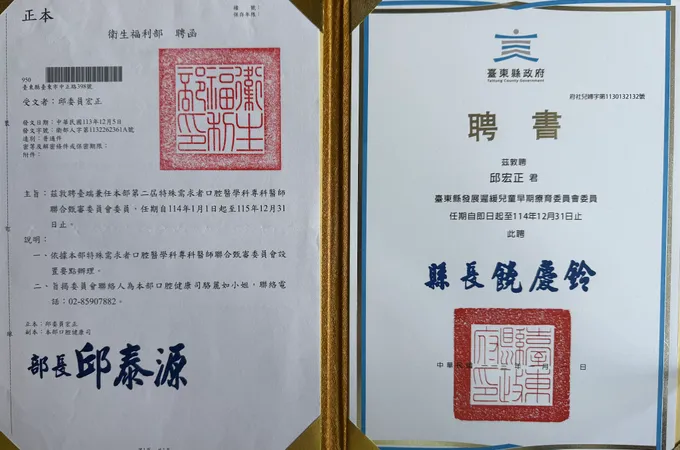 正本
檔　號：
保存年限：
衛生福利部　聘函
950
臺東縣臺東市中正路398號
受文者：邱委員宏正
發文日期：中華民國113年12月5日
發文字號：衛部人字第1132262361A號
速別：普通件
密等及解密條件或保密期限：
附件：
衛生福利部印
主旨：茲敦聘臺端兼任本部第二屆特殊需求者口腔醫學科專科醫師
聯合甄審委員會委員，任期自114年1月1日起至115年12月31
日止。
說明：
一、依據本部特殊需求者口腔醫學科專科醫師聯合甄審委員會設
置要點辦理。
二、旨揭委員會聯絡人為本部口腔健康司駱麗如小姐，聯絡電
話：02-85907882。
正本：邱委員宏正
副本：本部口腔健康司
部長邱泰源
裝
訂
線
臺東縣政府
Taitung County Government
府社兒婦字第1130132132號
聘書
茲敦聘
邱宏正 君
臺東縣發展遲緩兒童早期療育委員會委員
任期自即日起至114年12月31日止
此聘
縣長饒慶鈴
臺東縣政府印
中華民國
年
月
日